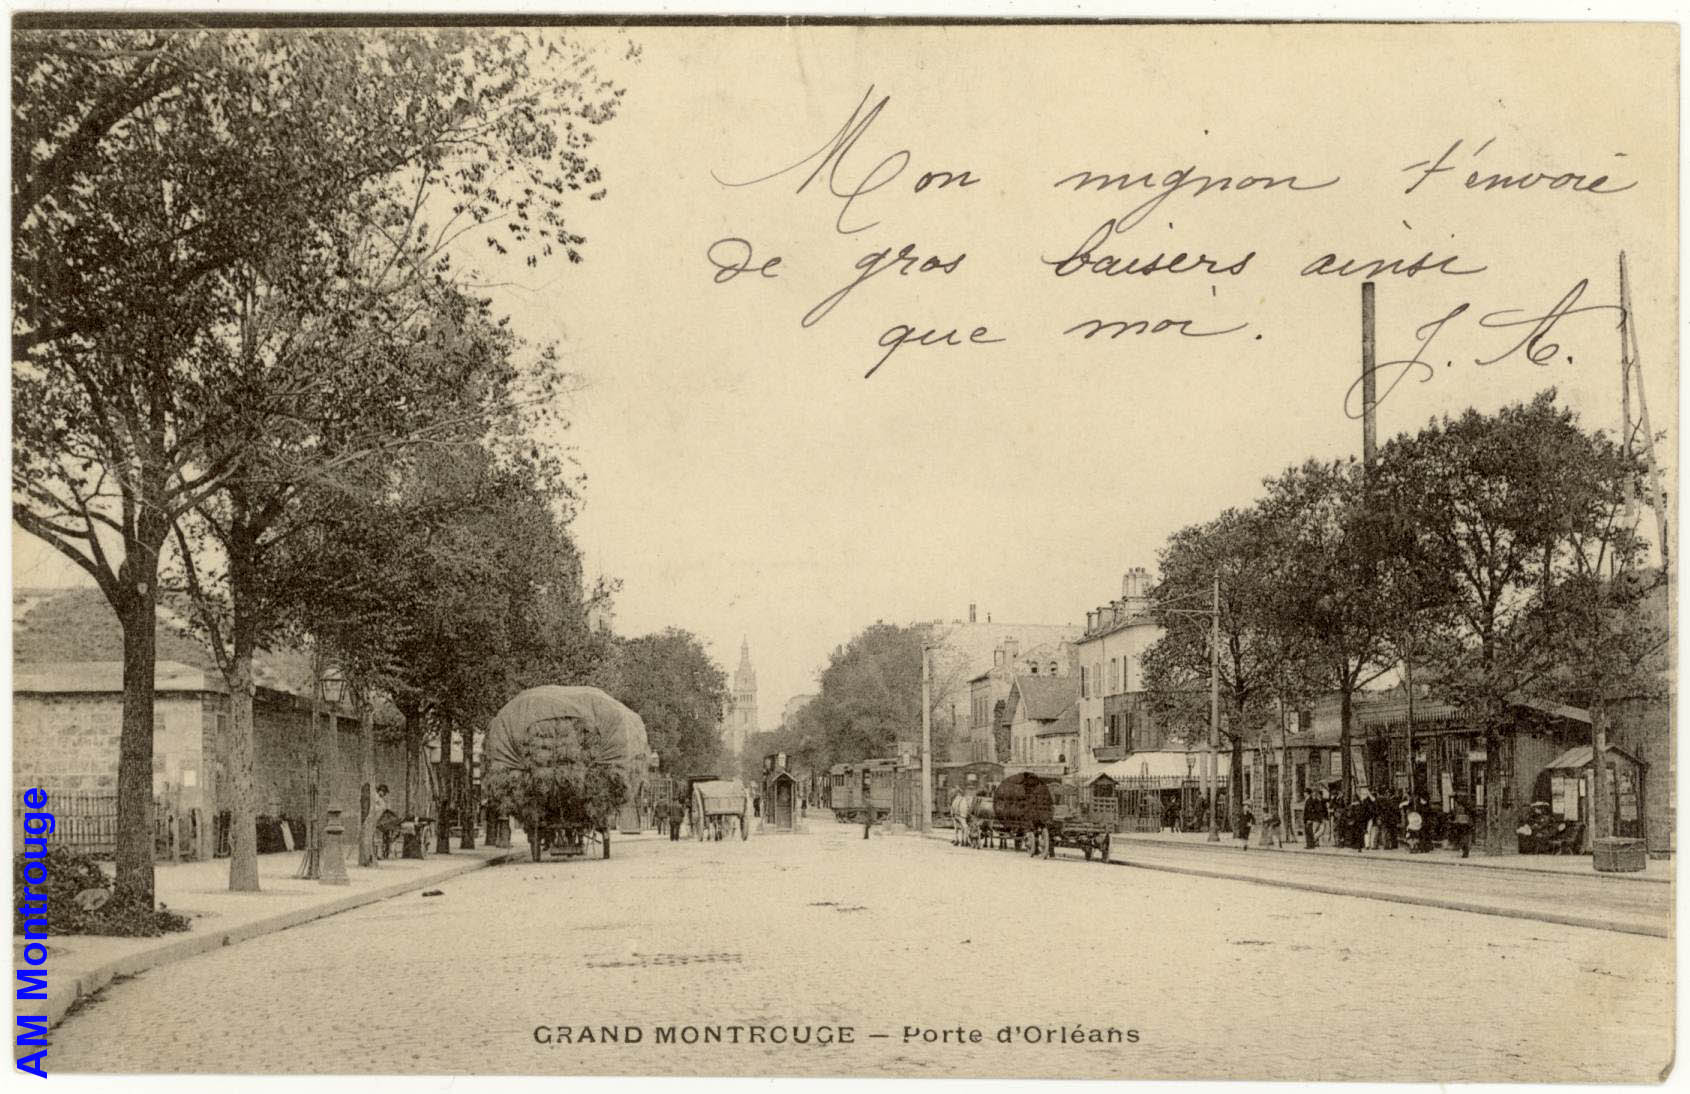 Mon mignon t'envoie
de gros baisers ainsi
que moi.
J. A.
GRAND MONTROUGE — Porte d'Orléans
AM Montrouge